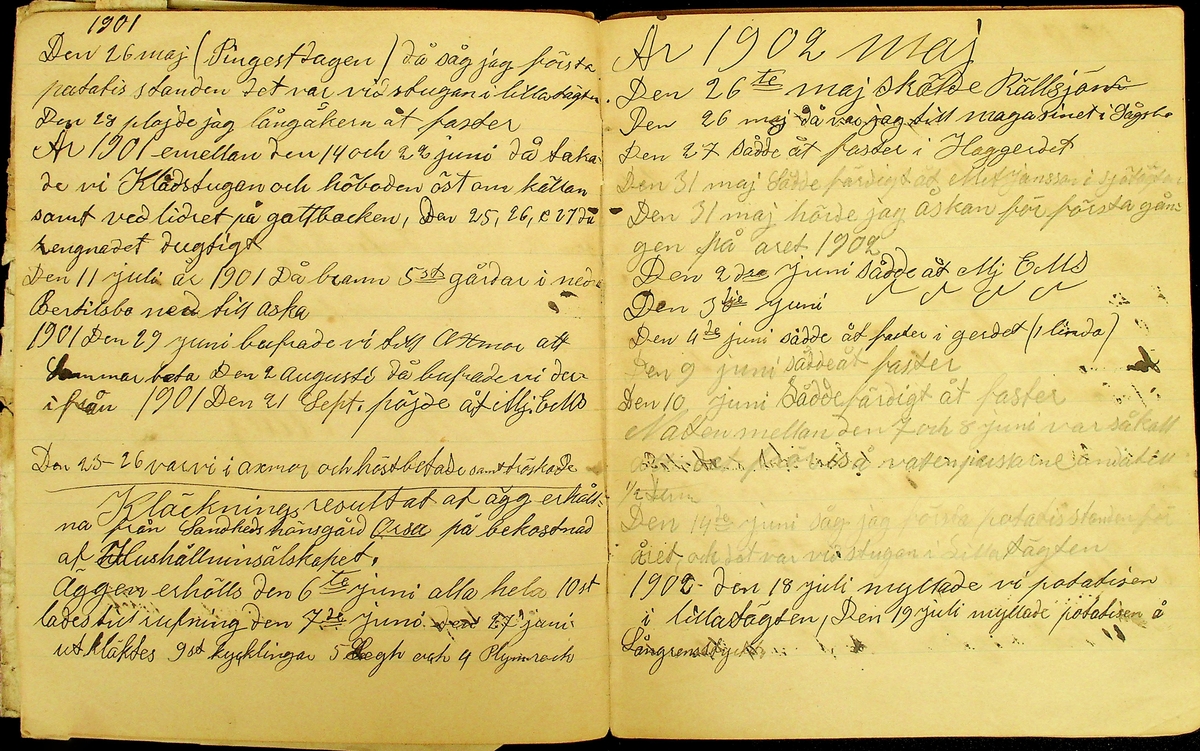 1901
Den 26 maj (Pingestdagen) då såg jag första
potatis standen det var vid stugan i lilla tägten
Den 28 plöjde jag långåkern åt faster
År 1901 emellan den 14 och 22 juni då taka-
de vi Klådstugan och höboden öst om källan
samt vedlidret på gattbacken, Den 25, 26, & 27 då
rengnadet dugtigt
Den 11 juli år 1901 Då brann 5 st gårdar i nedre
Bertilsbo ned till aska
1901 Den 29 juni bufrade vi till att
beta Den 2 Augusti då bufrade vi der-
ifrån 1901 Den 21 Sept. pöjde åt Mj. EMS
Den 25-26 var vi i axmor och höstbetade samt tröskade
Kläcknings resultat af ägg erhåll-
na från Sandheds hönsgård Orsa på bekostnad
af Hushållninsälskapet.
Äggen erhölls den 6te juni alla hela 10 st
lades till rufning den 7de juni den 27 juni
utkläktes 9 st kycklingar 5 Legh och 4 Plymroch
År 1902 maj
Den 26te maj skålde Källsjön
Den 26 maj då var jag till magasinet i Vågsbo
Den 27 sådde åt faster i Haggerdet
Den 31 maj Sådde färdigt åt Met Jansson i sjötägten
Den 31 maj hörde jag åskan för första gån-
gen på året 1902
Den 2dra juni sådde åt Mj EMS
Den 3dje juni
Den 4de juni sådde åt faster i gerdet (1 linda)
Den 9 juni sådde åt faster
Den 10 juni Sådde färdigt åt faster
Naten mellan den 7 och 8 juni var så kall
att det is å vatenpussarne ända till
1/2
Den 14de juni såg jag första potatis standen för
året, och det var vid stugan i Lilla tägten
1902 den 18 juli myllade vi potatisen
i lilla tägten, Den 19 juli myllade potatisen å
Långrensstycket